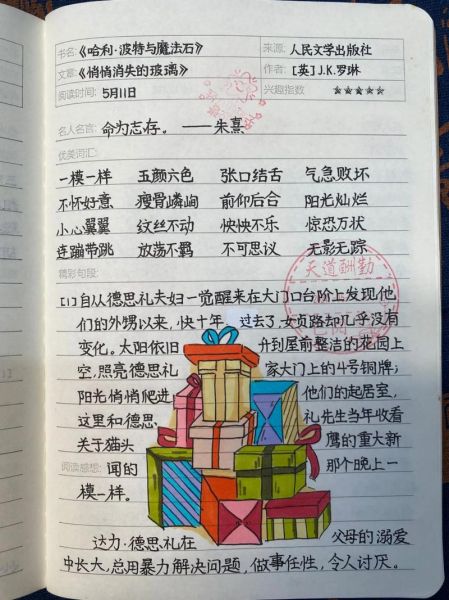 书名:《哈利·波特与魔法石》 来源: 人民文学出版社
文章:《悄悄消失的玻璃》 作者: [英]J.K.罗琳
阅读时间: 5月11日 兴趣指数 ★★★★★
名人名言: 命为志存。 ——朱熹
优美词汇:
一模一样 五颜六色 张口结舌 气急败坏
不怀好意 瘦骨嶙峋 前仰后合 阳光灿烂
小心翼翼 纹丝不动 怏怏不乐 惊恐万状
连蹦带跳 放荡不羁 不可思议 无影无踪
天道酬勤
精彩句段:
[1]自从德思礼夫妇一觉醒来在大门口台阶上发现他
们的外甥以来,快十年 过去了,女贞路却几乎没有
变化。太阳依旧 升到屋前整洁的花园上
空,照亮德思礼 家大门上的4号铜牌;
阳光悄悄爬进 他们的起居室,
这里和德思 礼先生当年收看
关于猫头 鹰的重大新
阅读感想: 闻的 那个晚上一
模一样。
达力·德思礼在 父母的溺爱
中长大,总用暴力解决问题,做事任性,令人讨厌。